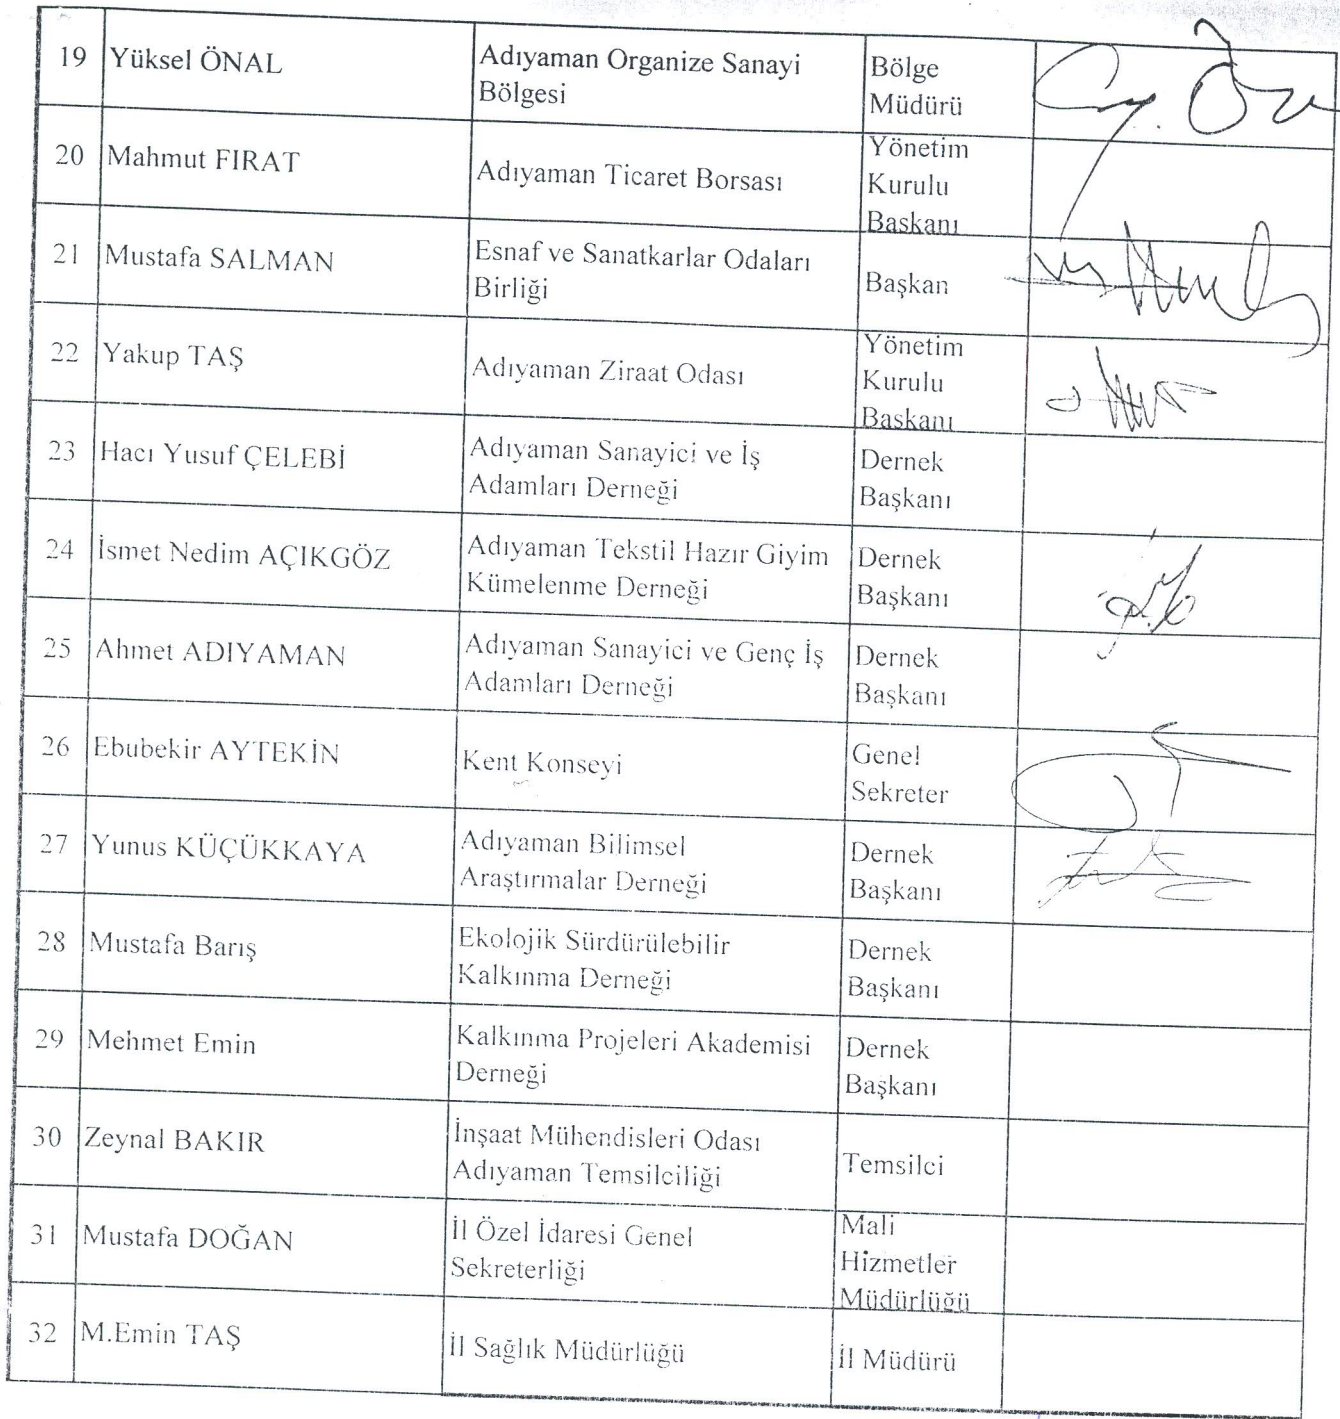 19 Yüksel ÖNAL Adıyaman Organize Sanayi Bölge
Bölgesi Müdürü
20 Mahmut FIRAT Adıyaman Ticaret Borsası Yönetim
Kurulu
Başkanı
21 Mustafa SALMAN Esnaf ve Sanatkarlar Odaları Başkan
Birliği
22 Yakup TAŞ Adıyaman Ziraat Odası Yönetim
Kurulu
Başkanı
23 Hacı Yusuf ÇELEBİ Adıyaman Sanayici ve İş Dernek
Adamları Derneği Başkanı
24 İsmet Nedim AÇIKGÖZ Adıyaman Tekstil Hazır Giyim Dernek
Kümelenme Derneği Başkanı
25 Ahmet ADIYAMAN Adıyaman Sanayici ve Genç İş Dernek
Adamları Derneği Başkanı
26 Ebubekir AYTEKİN Kent Konseyi Genel
Sekreter
27 Yunus KÜÇÜKKAYA Adıyaman Bilimsel Dernek
Araştırmalar Derneği Başkanı
28 Mustafa Barış Ekolojik Sürdürülebilir Dernek
Kalkınma Derneği Başkanı
29 Mehmet Emin Kalkınma Projeleri Akademisi Dernek
Derneği Başkanı
30 Zeynal BAKIR İnşaat Mühendisleri Odası Temsilci
Adıyaman Temsilciliği
31 Mustafa DOĞAN İl Özel İdaresi Genel Mali
Sekreterliği Hizmetler
Müdürlüğü
32 M.Emin TAŞ İl Sağlık Müdürlüğü İl Müdürü